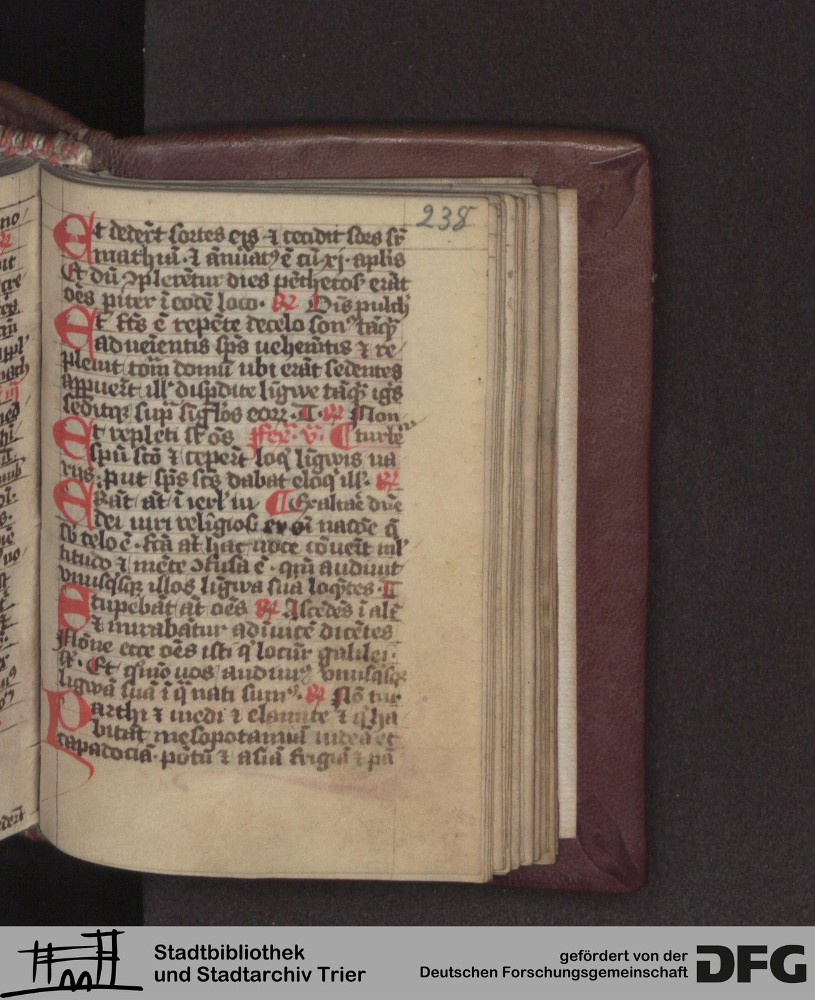 238
Et dedert sortes eis ⁊ cecidit sors sr̄
mathiā · ⁊ ānūat⁹ ē cū xj · aplis
Et dū ꝯplerētur dies pēthecos erāt
oēs piter ī eodē loco · R Dīs pulch
Et fcs ē repēte de celo son⁹ tāq̄
aduenientis sps uehemētis ⁊ re
pleuit totā domū ubi erāt sedentes
Appuert ill dispdite līgwe tāq̄ igs
seditqꝫ sup sīglos eorꝝ · T · R Non
Et repleti st oēs Fer · v · turbē
spū scō ⁊ ceperт loq līgwis ua
rijs · put sps scs dabat eloq ill · R
Erāt āt ī ierlm Exaltare dn̄e
dei uiri religiosi ex oī nacōe q̄
sb celo ē · fcā āt hac uoce cōuēit ml
titudo ⁊ mēte ꝯfusa ē · qm̄ audiuit
vnusqsqꝫ illos līgwa sua loq̄tes · T
Stupebāt āt oēs R Ascēdēs ī altū
⁊ mirabātur adiuicē dicētes
Nōne ecce oēs isti q locūt galilei
st · Et quō nos audiuim⁹ vnusqsqꝫ
ligwā suā ī q̄ nati sum⁹ · R Nō tur
Parthi ⁊ medi ⁊ elamite ⁊ q ha
bitāt mesopotamiā iudeā et
capadociā · pōtū ⁊ asiā frigiā ⁊ pā
Stadtbibliothek
und Stadtarchiv Trier
gefördert von der
Deutschen Forschungsgemeinschaft
DFG